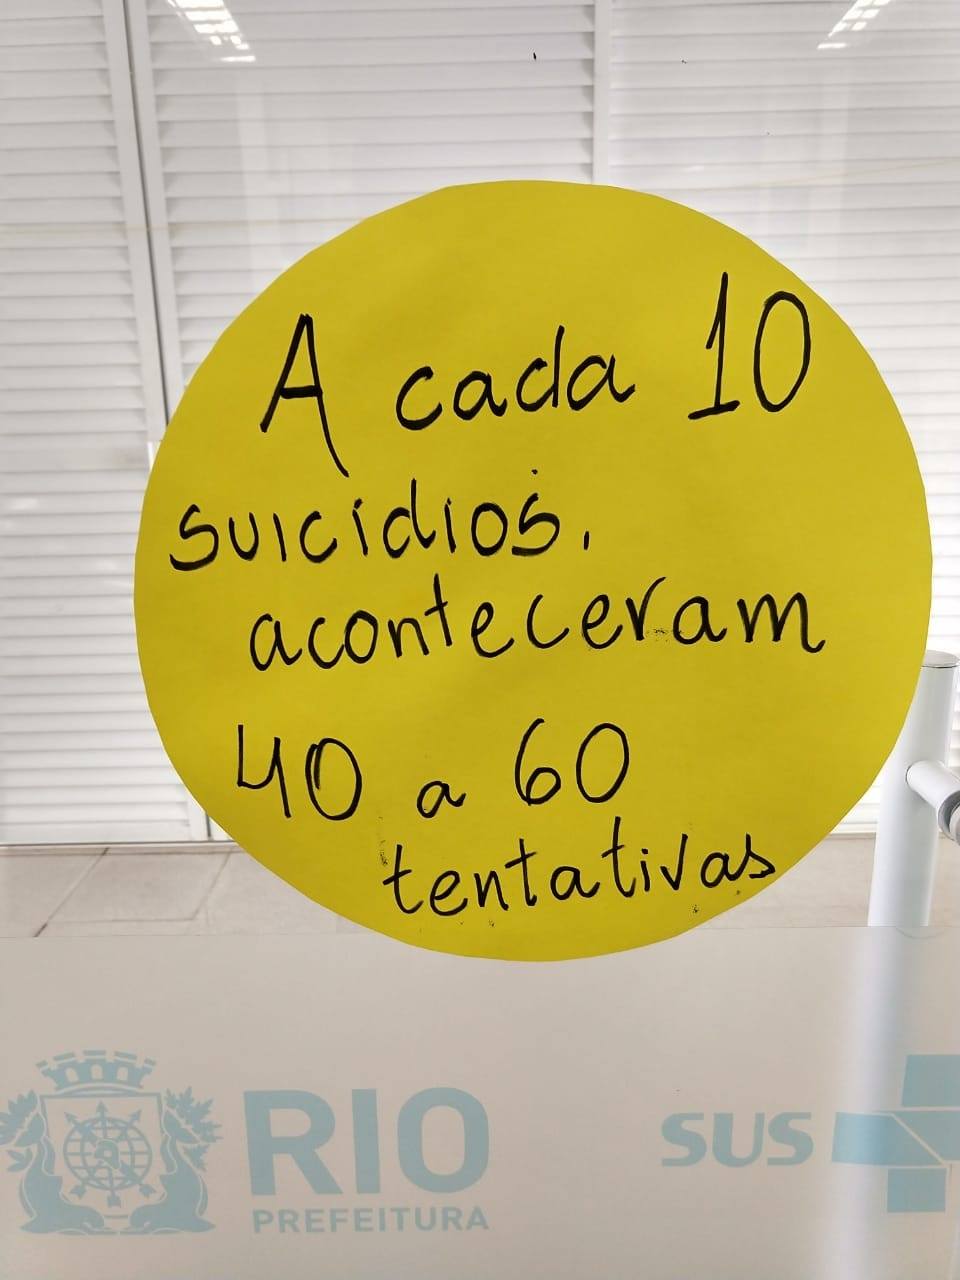 A cada 10
suicídios,
aconteceram
40 a 60
tentativas
RIO
PREFEITURA
SUS